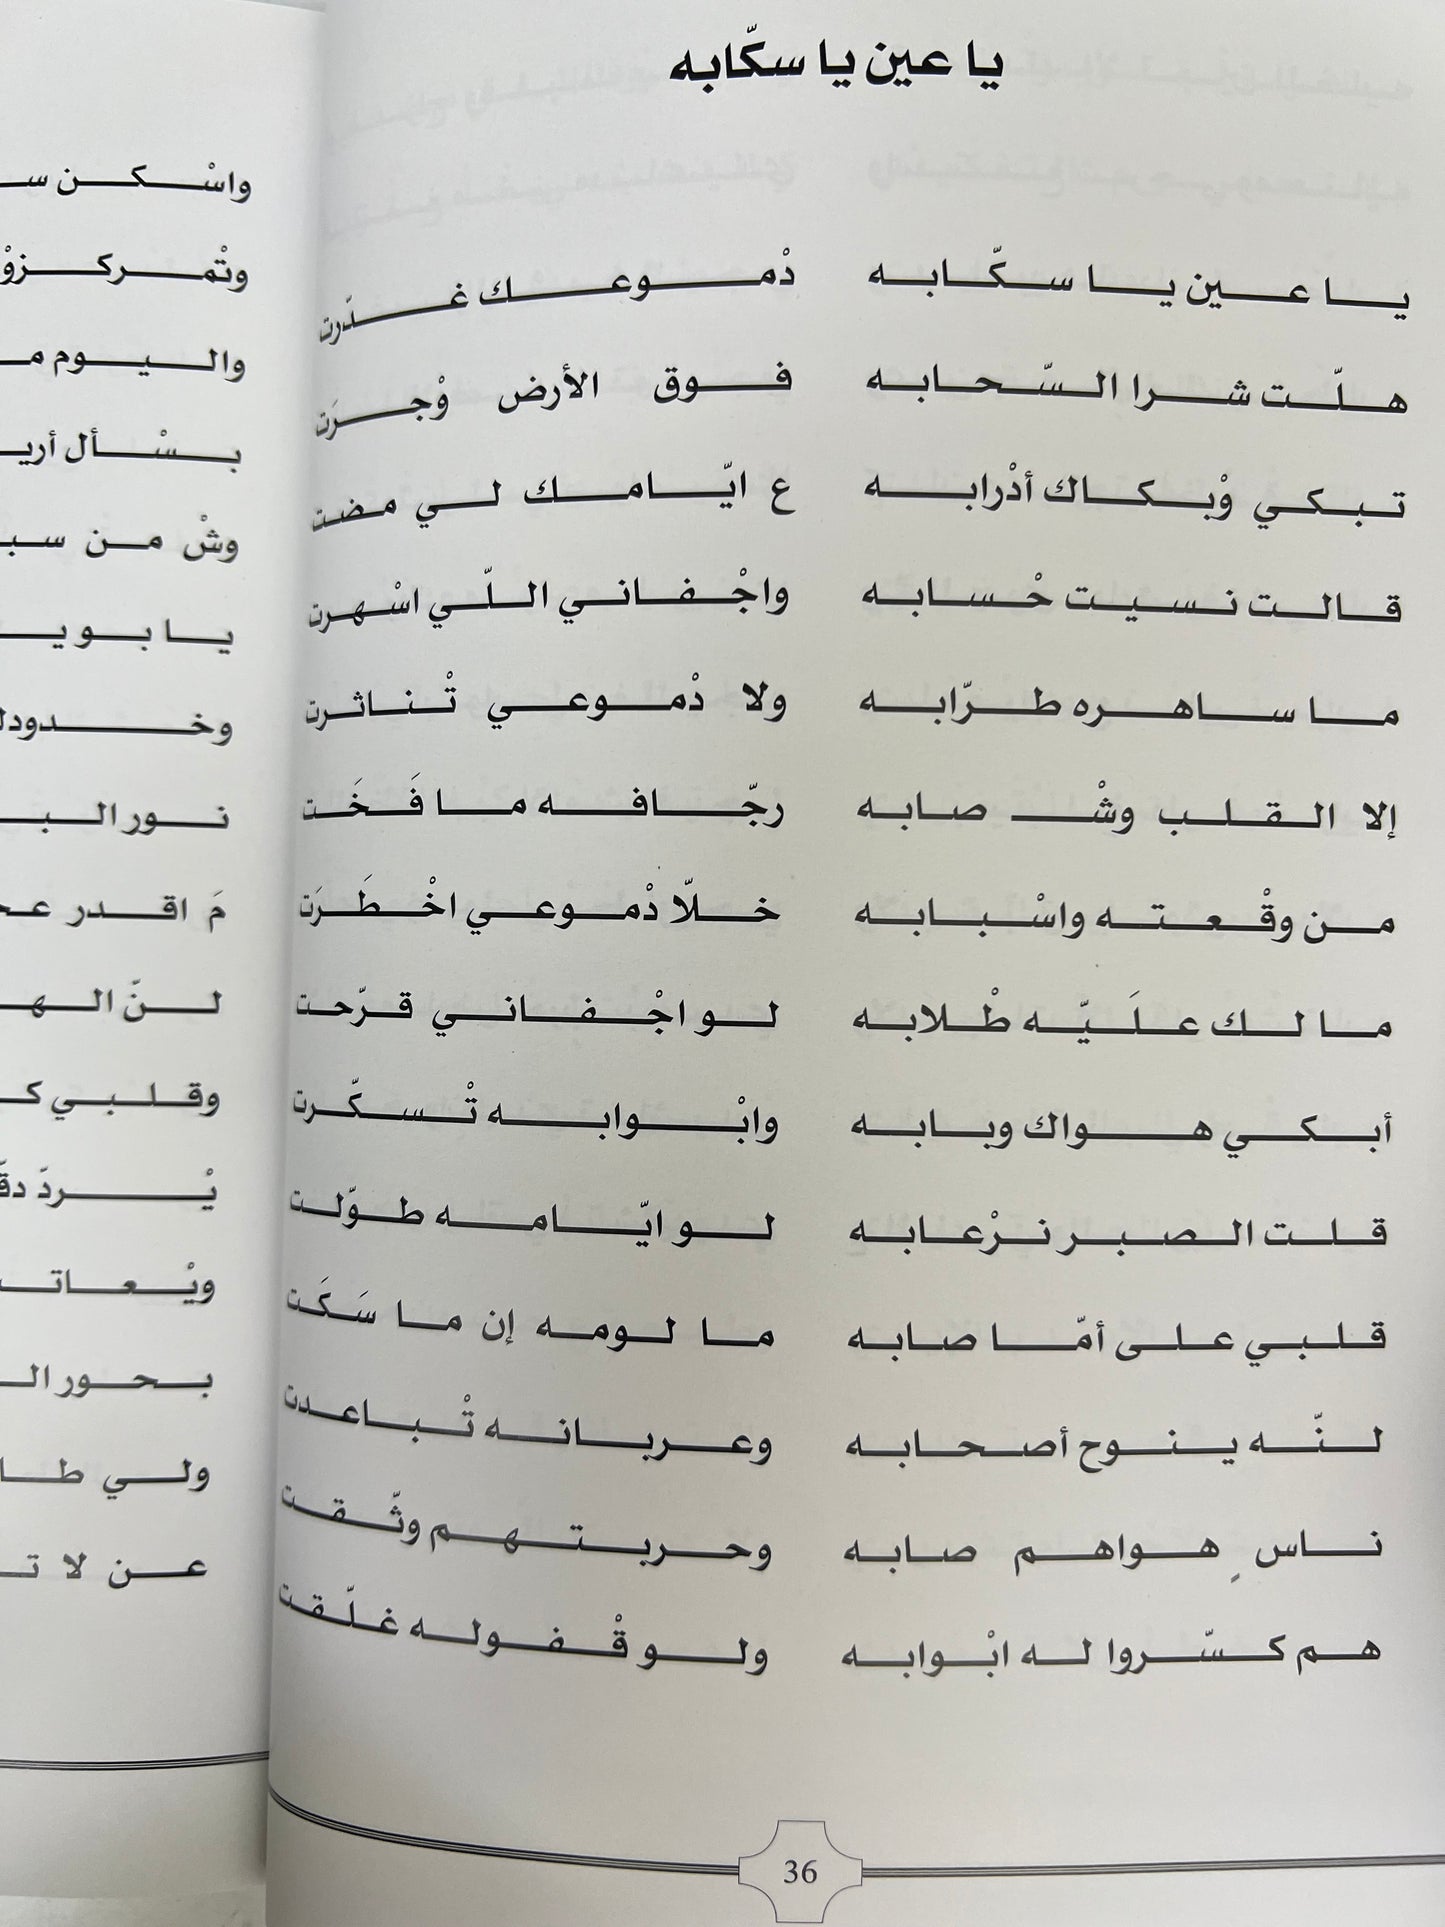 يا عين يا سكّابه
يا عين يا سكّابه دْموعك غدّرت
هلّت شرا السّحابه فوق الأرض وْجرَت
تبكي وْبكاك أدْرابه ع ايّامك لي مضت
قالت نسيت حْسابه واجْفاني اللّي اسْهرت
ما ساهره طرّابه ولا دْموعي تْناثرت
إلا القلب وشْ صابه رجّافه ما فَخَت
من وقْعته واسْبابه خلّا دْموعي اخْطَرَت
ما لك علَيّه طْلابه لو اجْفاني قرّحت
أبكي هواك وبابه وابْوابه تْسكّرت
قلت الصبر نرْعابه لو ايّامه طوّلت
قلبي على أمّا صابه ما لومه إن ما سَكَت
لنّه ينوح أصحابه وعربانه تْباعدت
ناسٍ هواهم صابه وحربتهم وثّقت
هم كسّروا له ابْوابه ولو قْفوله غلّقت
36
واسْكن
وتْمركزوْ
واليوم
بسْأل
وشْ من
يا بو
وخدودك
نور
مَ اقدر
لنّ
وقلبي
يْردّ
ويْعاتـ
بحور
ولي
عن لا